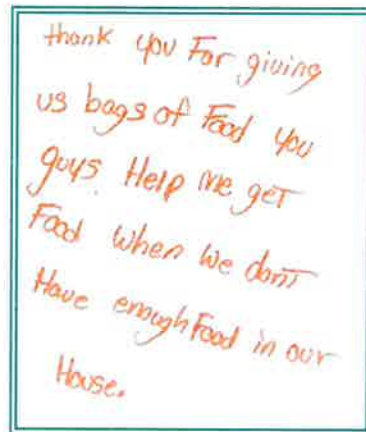 thank you For giving
us bags of Food you
guys. Help me get
Food when we dont
Have enough Food in our
House.